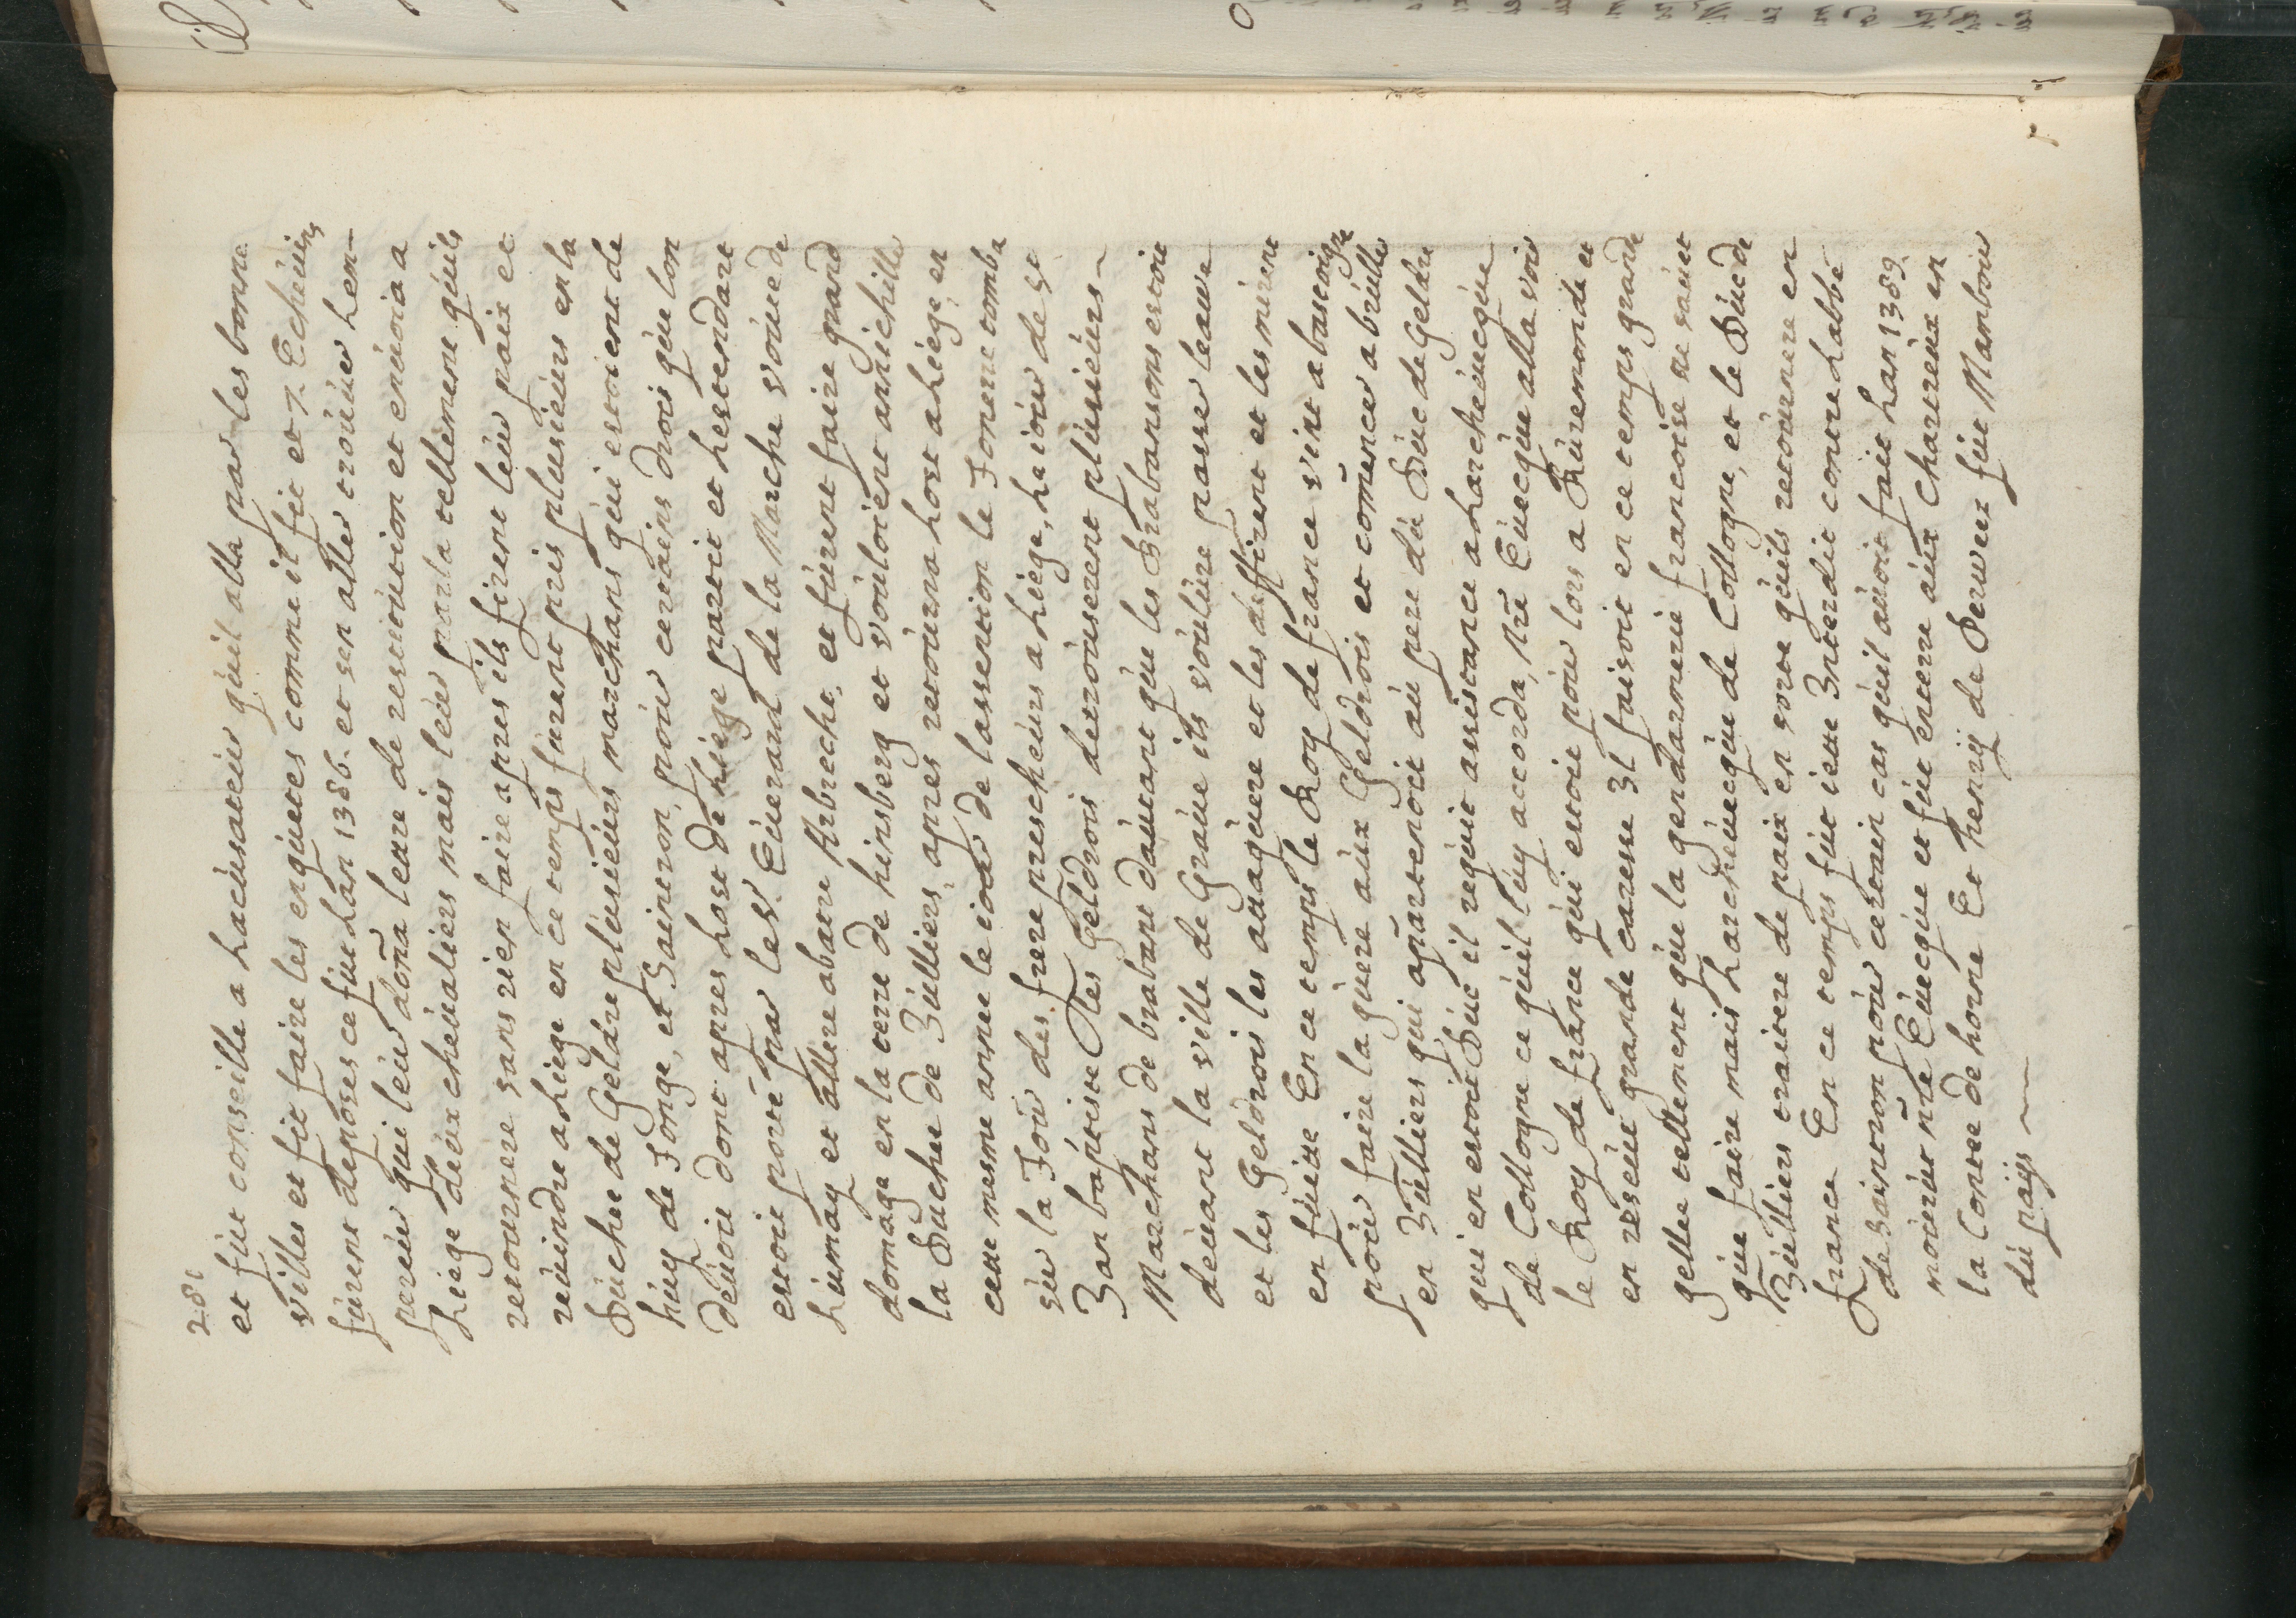 281
et fut conseille a lacusateur quil alla par les bonne
villes et fit faire les enquetes comme il fit et 7. Echeuins
furent deposes ce fut lan 1386. et sen aller trouuer lem-
pereur qui leur doña lettre de restitution et enuoia a
Liege deux cheualiers mais leur parla tellement quils
retournere sans rien faire apres ils firent leur paix et
reuindre a Liege en ce temps furent pris plusieurs en la
Duchee de Geldre plusieurs marchans qui estoient de
huy de Tonge, et Saintron, pour certains drois que lon
deuoit dont apres lost de Liege partit et lestendart
estoit porté par le sr. Euerard de la Marche voüe de
Lumay et allere abatre Arbrecht, et furent faire grand
domage en la terre de hinsberg et vouloient annichille
la Duchee de Juilliers, apres retourna lost a Liege, en
cette mesme annee le iour de lassention le Tonnere tomba
sur la Tour des frere prescheurs a Liege, la iour de st
Jan baptiste les Geldrois detrouserent plusieurs
Marchans de brabant dautant que les Brabansons estoit
deuant la ville de Graue ils voulure passer leauue
et les Geldrois les attaquere et les deffirent et les mirent
en fuitte En ce temps le Roy de france vint a bastoigne
pour faire la guere aux Geldrois et comencer a bruller
en Julliers qui apartenoit au pere du Duc de Geldre
qui en estoit Duc il requit assistance a Larcheuecque
de Collogne ce quil luy accorda, Nre Euecque alla voir
le Roy de france qui estoit pour lors a Ruremonde et
en reseut grande caresse Il faisoit en ce temps grande
gellee tellement que la gendarmerie francoise ne sauet
que faire mais Larcheuecque de Collogne, et le Duc de
Juilliers traitere de paix en sorte quils retournere en
france En ce temps fut iette Interdit contre Labbé
de Saintron pour certain cas quil auoit fait Lan 1389.
mourut nr̃e Euecque et fut enterre aux Chartreux en
la Contee de horne Et henry de Perwez fut Mambour
du païs